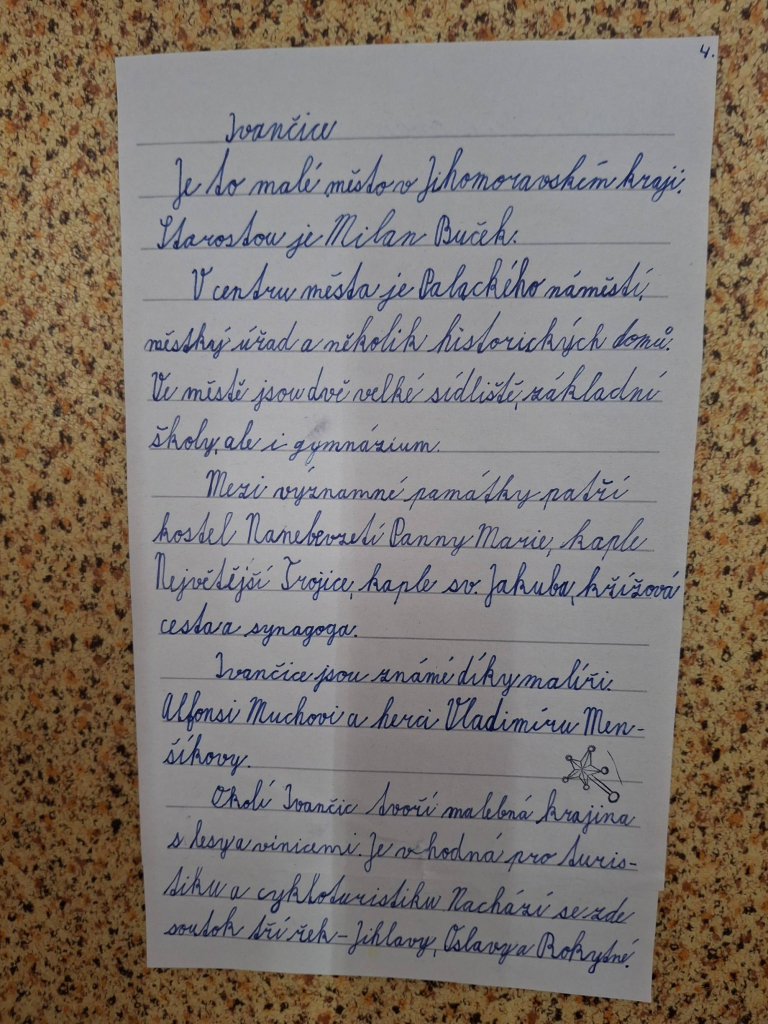 4.
Ivančice
Je to malé město v Jihomoravském kraji.
Starostou je Milan Buček.
V centru města je Palackého náměstí,
městký úřad a několik historických domů.
Ve městě jsou dvě velké sídliště, základní
školy, ale i gymnázium.
Mezi významné památky patří
kostel Nanebevzetí Panny Marie, kaple
Největější Trojice, kaple sv. Jakuba, křížová
cesta a synagoga.
Ivančice jsou známé díky malíři.
Alfonsi Muchovi a herci Vladimíru Men-
šíkovy.
Okolí Ivančic tvoří malebná krajina
s lesy a vinicemi. Je vhodná pro turis-
tiku a cykloturistiku Nachází se zde
soutok tří řek - Jihlavy, Oslavy a Rokytné.